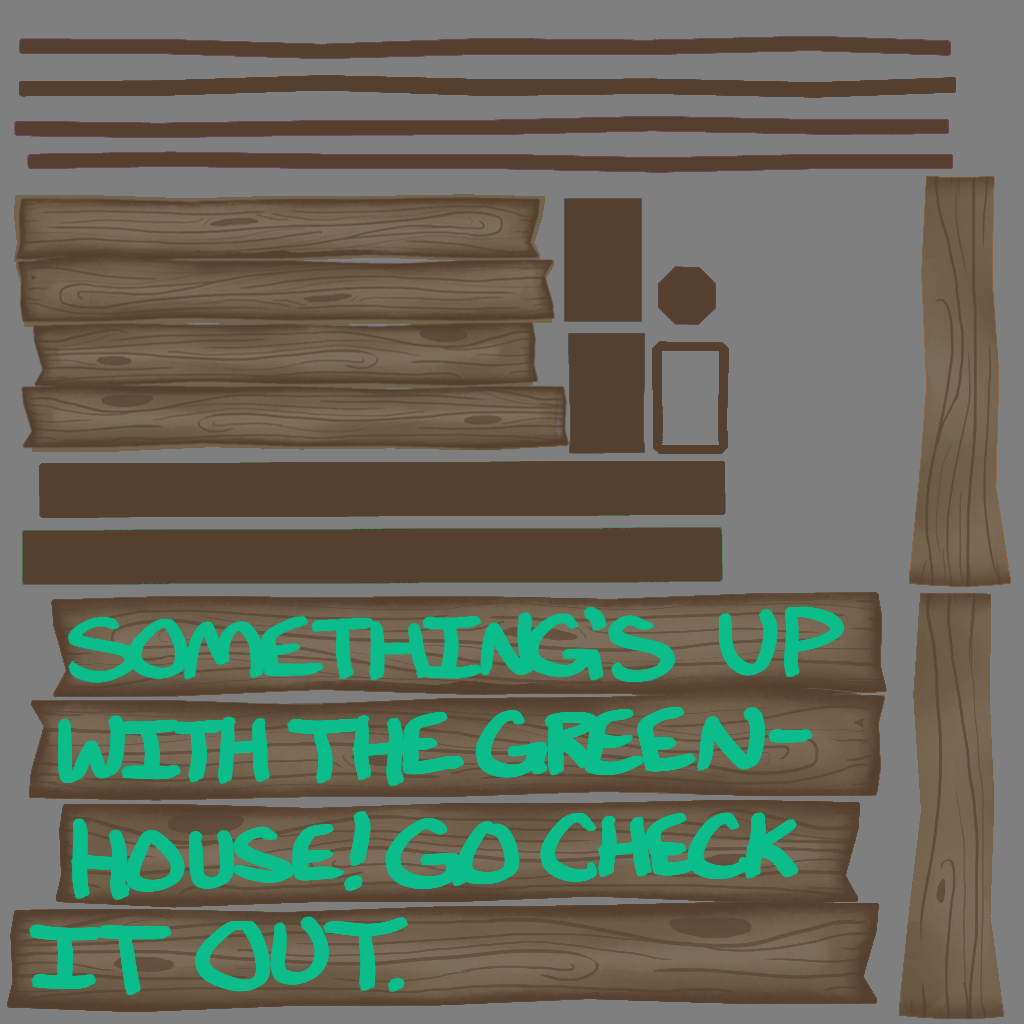 SOMETHING'S UP
WITH THE GREEN-
HOUSE! GO CHECK
IT OUT.